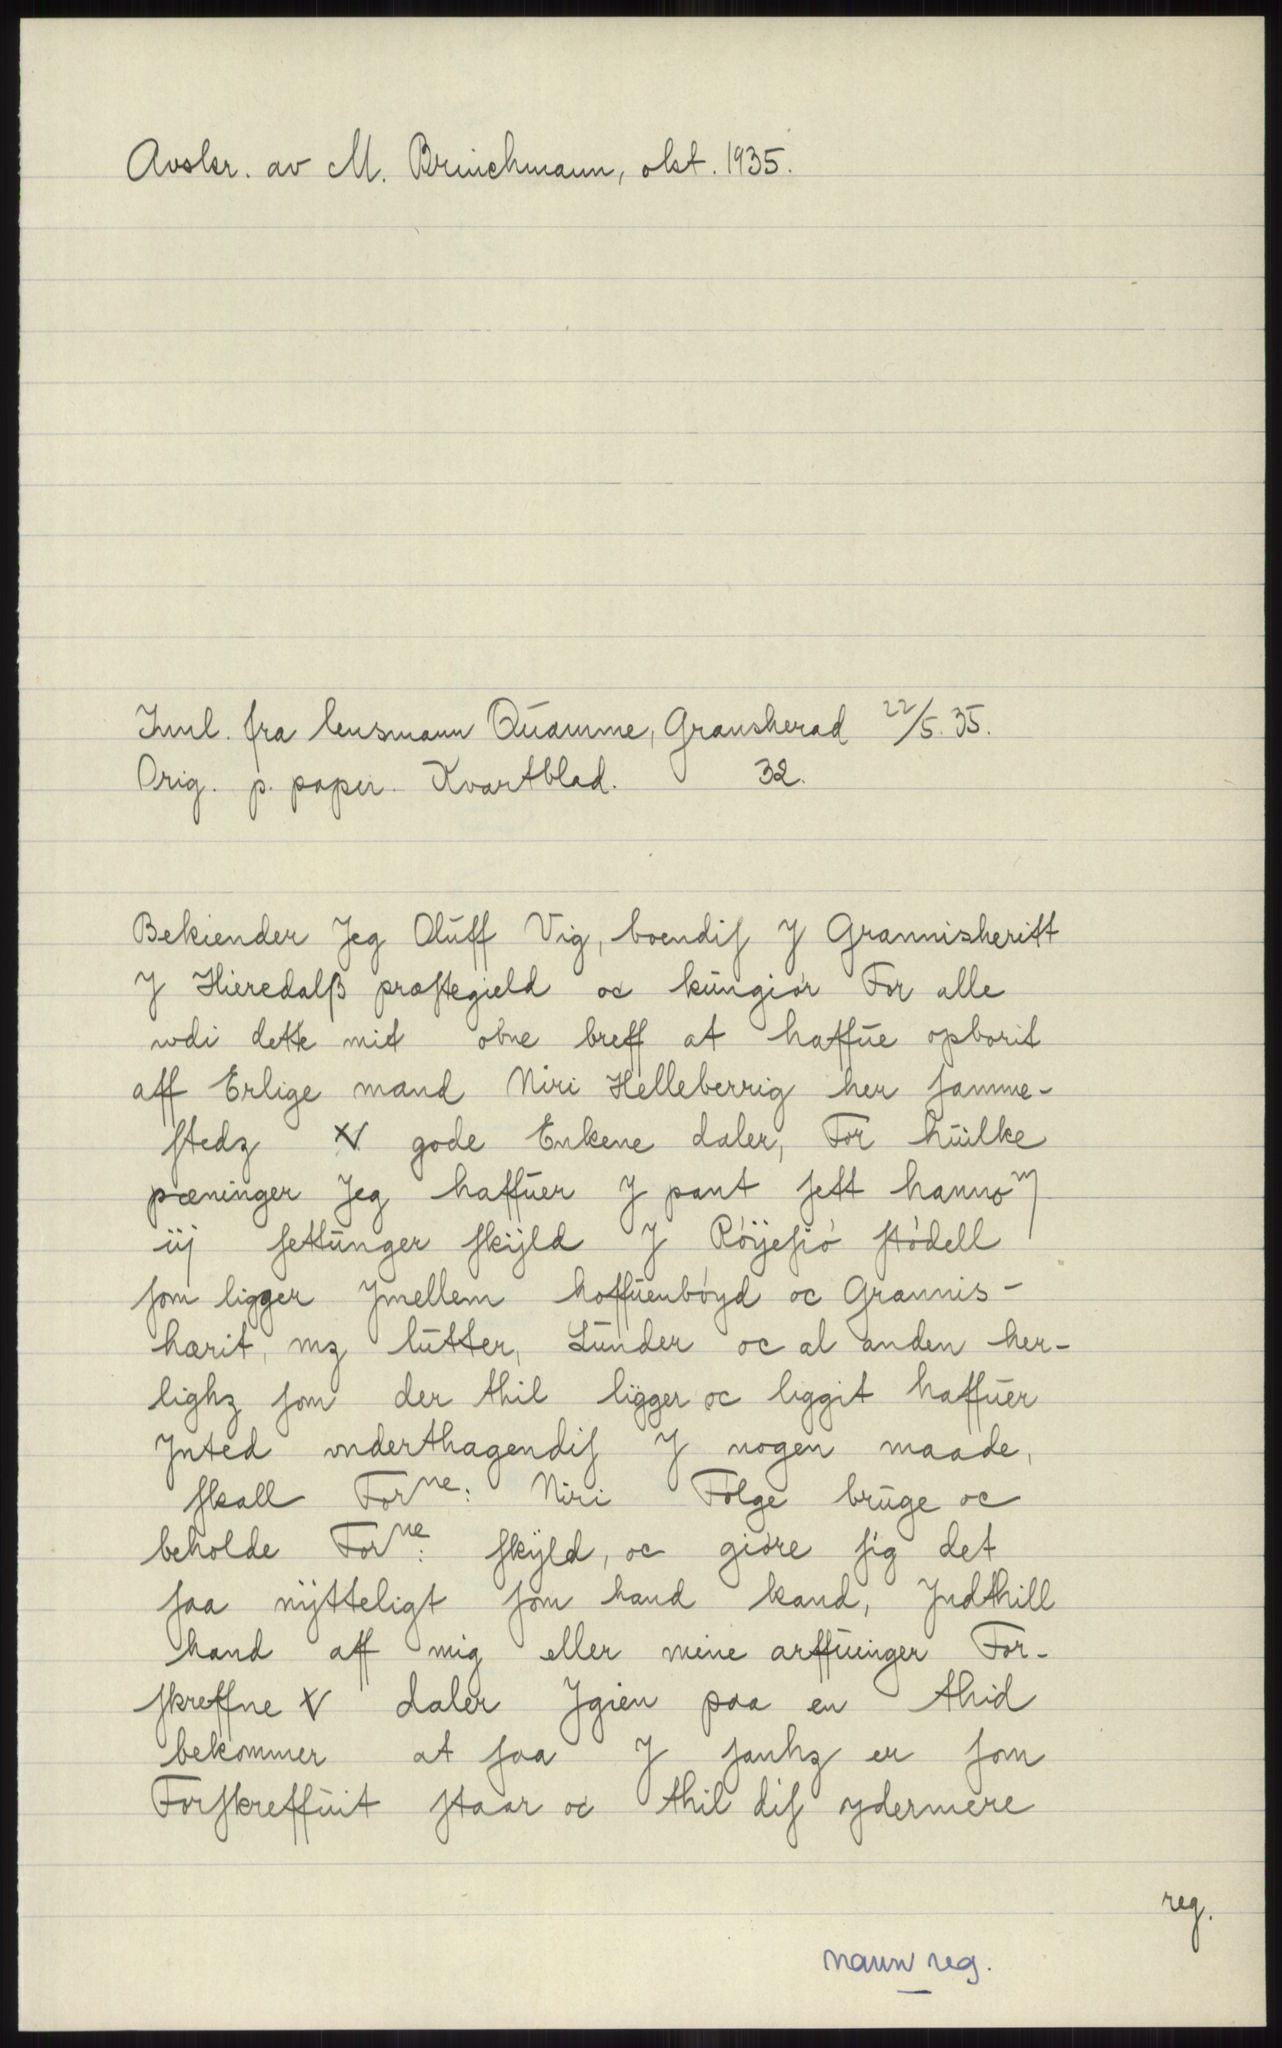 Avskr. av M. Brinchmann, okt. 1935.
Innl. fra lensmann Quamme, Gransherad 22/5. 35.
Orig. p. papir. Kvartblad. 32.
Bekiender Jeg Oluff Vig, boendiſ J Grannisheritt
J Hieredalß præſtegield oc kungiør For alle
udi dette mit obne breff at haffue opborit
aff Erlige mand Niri Helleberrig her ſamme-
ſtedz V gode Enkene daler, For huilke
pæninger Jeg haffuer J pant ſett hannom
iij ſettunger ſkyld J Røyeſiø ſtødell
ſom ligger Jmellem hoffuenbøyd oc Grannis-
hærit, mz lutter, Lunder oc al anden her-
lighz ſom der thil ligger oc liggit haffuer
Jnted vnderthagendiſ J nogen maade,
ſkall Forne: Niri Følge bruge oc
beholde Forne: ſkyld, oc giøre ſig det
ſaa nytteligt ſom hand kand, Jndthill
hand aff mig eller mine arffuinger For-
ſkreffne V daler Jgien paa en thid
bekommer at ſaa J ſanhz er ſom
Forſkreffuit ſtaar oc thil diſ ydermere
reg.
navn reg.